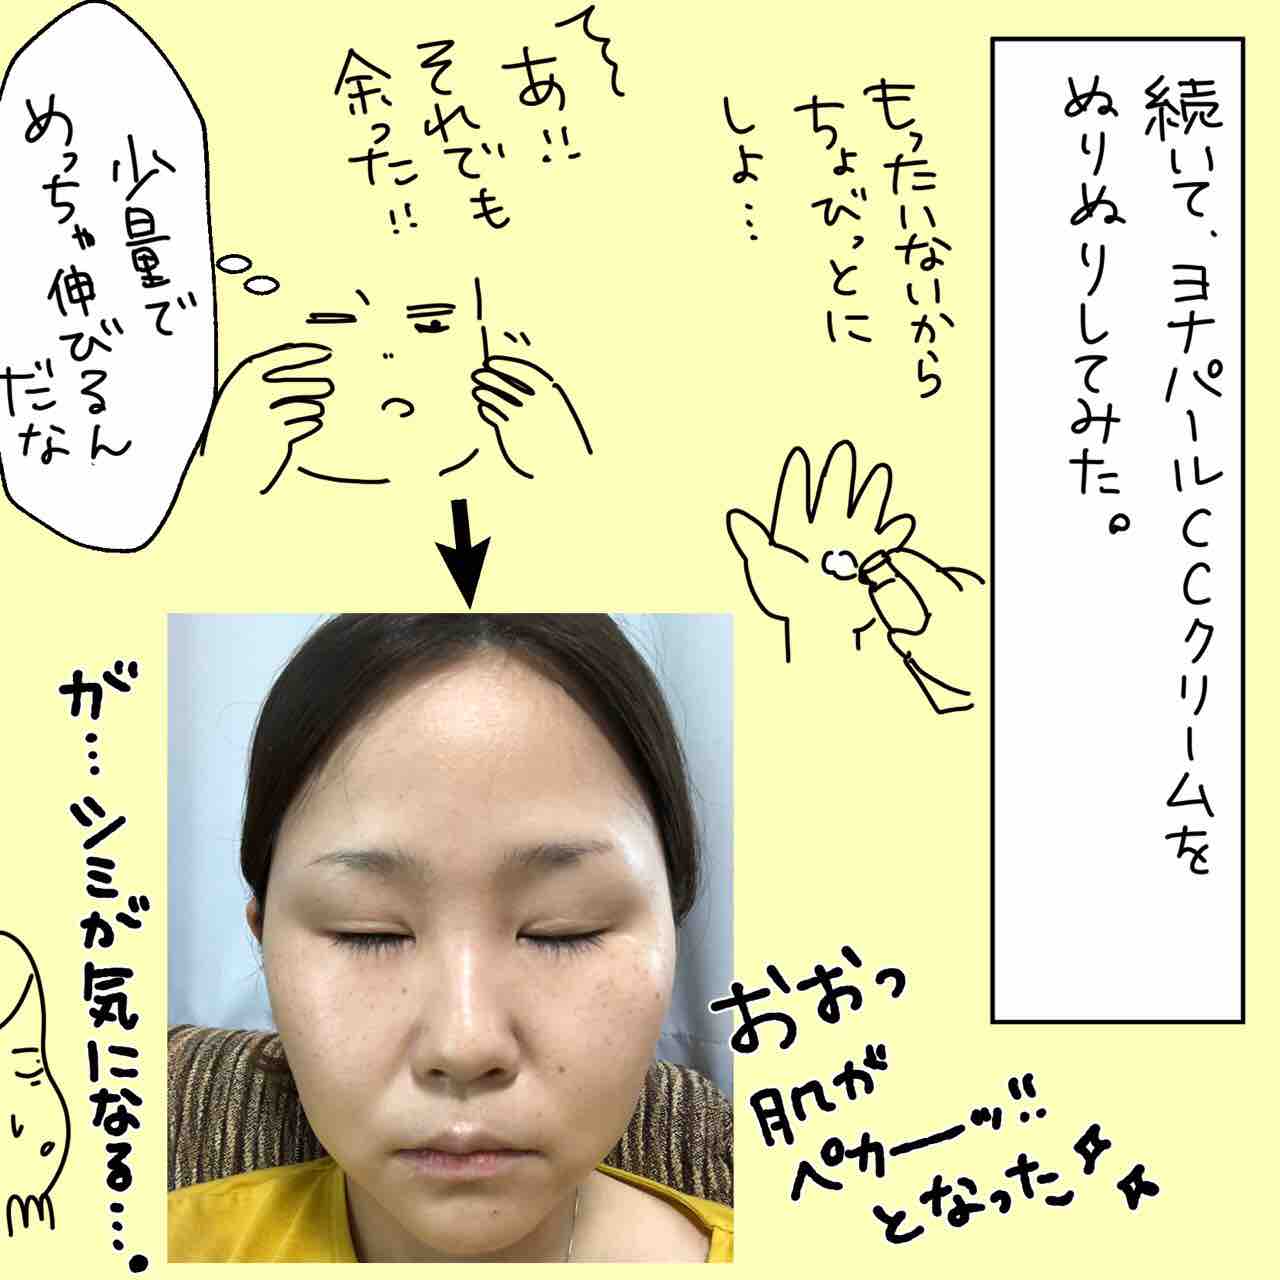 続いて、ヨナパールCCクリームを
ぬりぬりしてみた。
もったいないから
ちょびっとに
しよ…
あ!!
それでも
余った!!
少量で
めっちゃ伸びるん
だな
おおっ
肌が
ペカーーッ!!
となった
が…シミが気になる…。